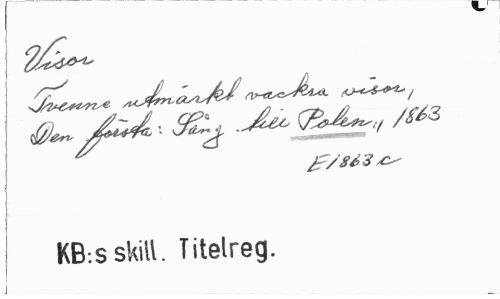 Visor
Tvenne utmärkt vackra visor,
Den första: Sång till Polen,, 1863
E1863c
KB:s skill. Titelreg.